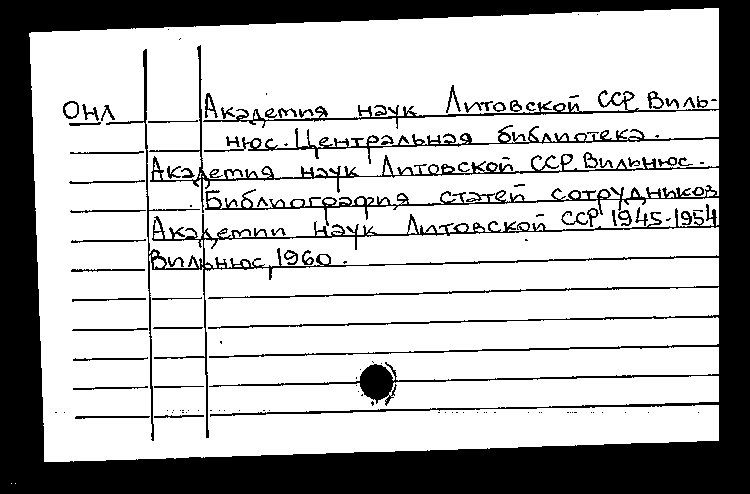 ОНЛ Академия наук Литовской ССР. Виль-
нюс. Центральная библиотека.
Академия наук Литовской ССР. Вильнюс.
Библиография статей сотрудников
Академии наук Литовской ССР. 1945-1954
Вильнюс, 1960.